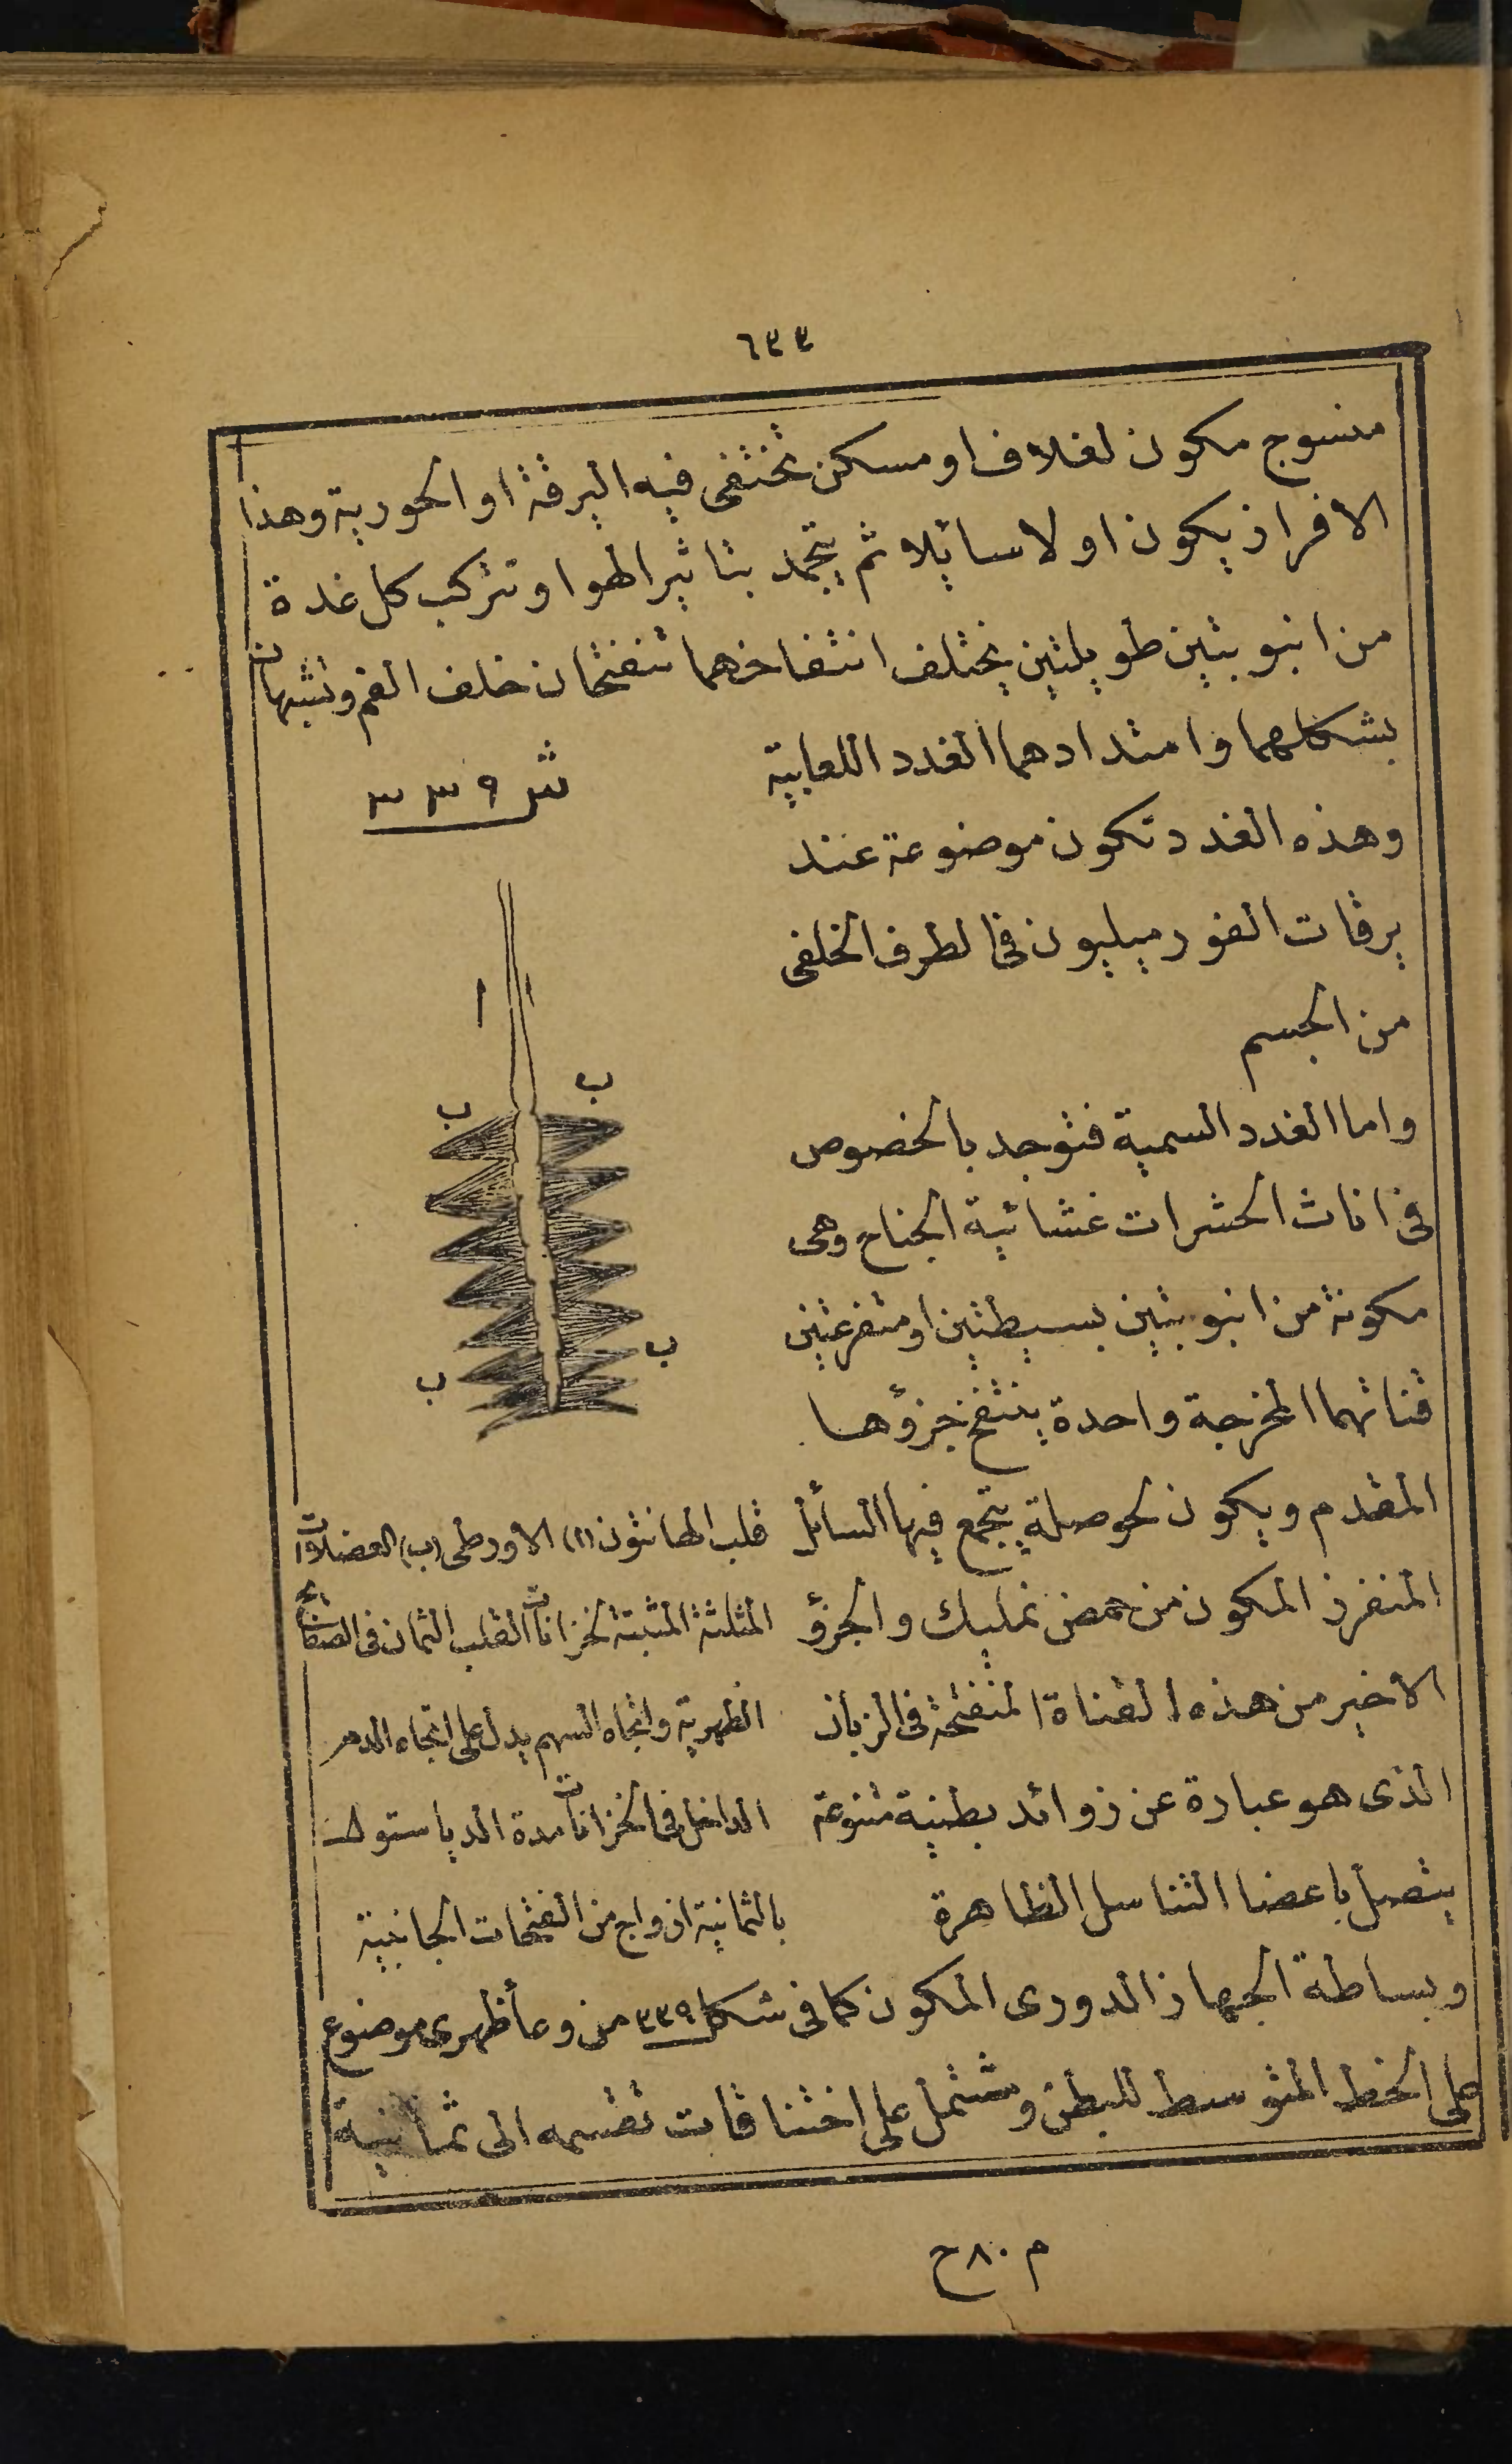 ٦٣٣
منسوج مكون لغلاف او مسكن تختفى فيه اليرقة او الحورية وهذا
الافراز يكون اولا سائلا ثم يتجمد بتاثير الهوا وتتركب كل غدة
من انبوبتين طويلتين يختلف انتفاخهما تنفتحان خلف الفم وتشبهان
بشكلهما وامتدادهما الغدد اللعابية
وهذه الغدد تكون موضوعة عند
يرقات الفورميليون فى الطرف الخلفى
من الجسم
واما الغدد السمية فتوجد بالخصوص
فى اناث الحشرات غشائية الجناح وهى
مكونة من انبوبتين بسيطتين او متفرعتين
قناتهما المخرجة واحدة ينتفخ جزؤها
المقدم ويكون لحوصلة يتجمع فيها السائل
المنفرز المكون من حمض نمليك والجزؤ
الاخير من هذه القناة المنفتحة فى الزبان
الذى هو عبارة عن زوائد بطنية متنوعة
يتصل باعضا التناسل الظاهرة
ش ٣٣٩
ا
ب
ب
ب
ب
قلب الهانتون (ا) الاورطى (ب) العضلات
المثلثة المثبتة لخزانات القلب الثمان فى الصفائح
الظهرية واتجاه السهم يدل على اتجاه الدم
الداخل فى الخزانات مدة الدياستول
بالثمانية ازواج من الفتحات الجانبية
وبساطة الجهاز الدورى المكون كما فى شكل ٣٣٩ من وعأ ظهرى موضوع
على الخط المتوسط للبطن ومشتمل على اختناقات تقسمه الى ثمانية
م ٨٠ ح